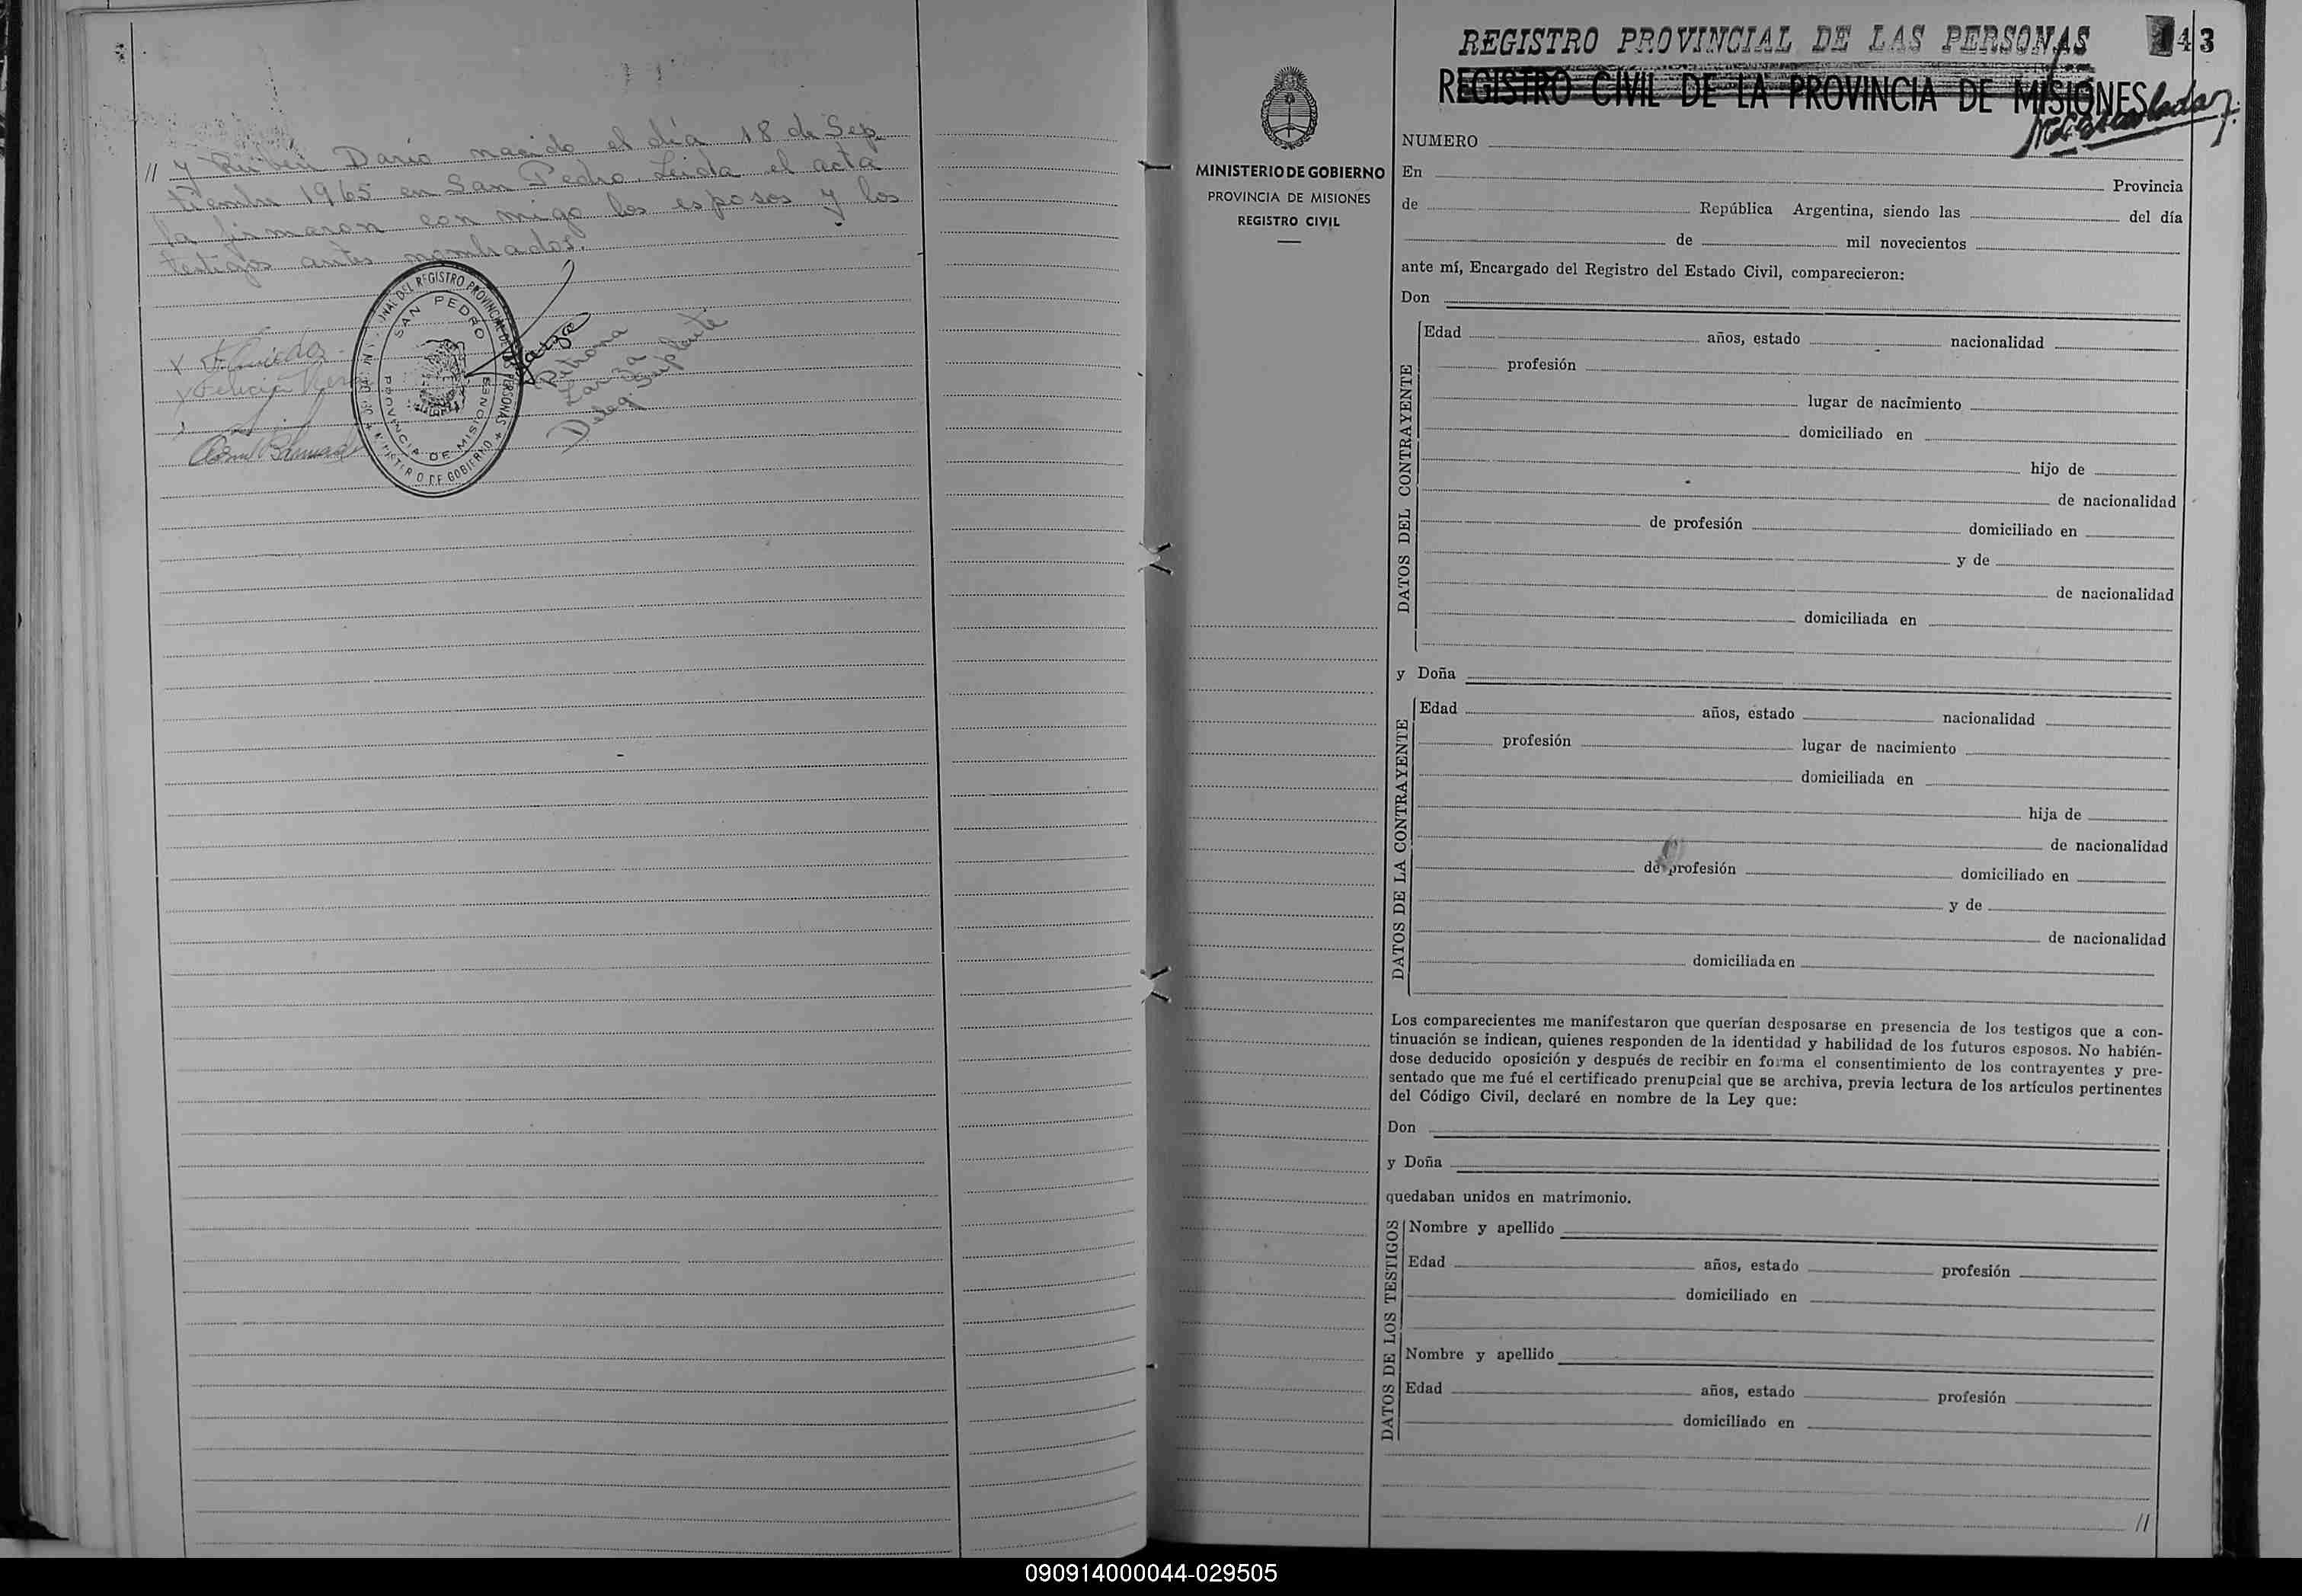 // y Ruben Dario nacido el día 18 de Sep
tiembre 1965 en San Pedro. Leida el acta
la firmaron con migo los esposos y los
testigos antes nombrados.
REGISTRO PROVINCIAL DE LAS PERSONAS
SAN PEDRO
PROVINCIA DE MISIONES
MINISTERIO DE GOBIERNO
Petrona
Zarza
Deleg. Suplente
MINISTERIO DE GOBIERNO
PROVINCIA DE MISIONES
REGISTRO CIVIL
REGISTRO PROVINCIAL DE LAS PERSONAS
43
REGISTRO CIVIL DE LA PROVINCIA DE MISIONES
NUMERO
En Provincia
de República Argentina, siendo las del día
de mil novecientos
ante mí, Encargado del Registro del Estado Civil, comparecieron:
Don
DATOS DEL CONTRAYENTE
Edad años, estado nacionalidad
profesión
lugar de nacimiento
domiciliado en
hijo de
de nacionalidad
de profesión domiciliado en
y de
de nacionalidad
domiciliada en
y Doña
DATOS DE LA CONTRAYENTE
Edad años, estado nacionalidad
profesión lugar de nacimiento
domiciliada en
hija de
de nacionalidad
de profesión domiciliado en
y de
de nacionalidad
domiciliada en
Los comparecientes me manifestaron que querían desposarse en presencia de los testigos que a con-
tinuación se indican, quienes responden de la identidad y habilidad de los futuros esposos. No habién-
dose deducido oposición y después de recibir en forma el consentimiento de los contrayentes y pre-
sentado que me fué el certificado prenupcial que se archiva, previa lectura de los artículos pertinentes
del Código Civil, declaré en nombre de la Ley que:
Don
y Doña
quedaban unidos en matrimonio.
DATOS DE LOS TESTIGOS
Nombre y apellido
Edad años, estado profesión
domiciliado en
Nombre y apellido
Edad años, estado profesión
domiciliado en
//
090914000044-029505